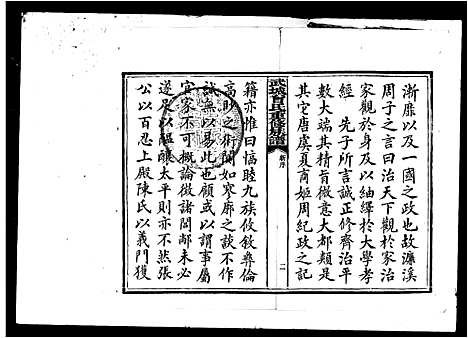 漸靡以及一國之政也故濂溪
周子之言曰治天下觀於家治
家觀於身及以紬繹於大學孝
經 先子所言誠正修齊治平
數大端其精肓微意大都類是
其它唐虞夏商姬周紀政之記
武城曾氏重修族譜
新序
二
籍亦惟曰惇睦九族攸敘彝倫
高眇之術闊如寥廓之談不作
誠無以易此也顧或以謂事屬
宜家不可概論微諸閭邮未必
遂足以醞釀太平則亦不然張
公以百忍上殿陳氏以義門獲